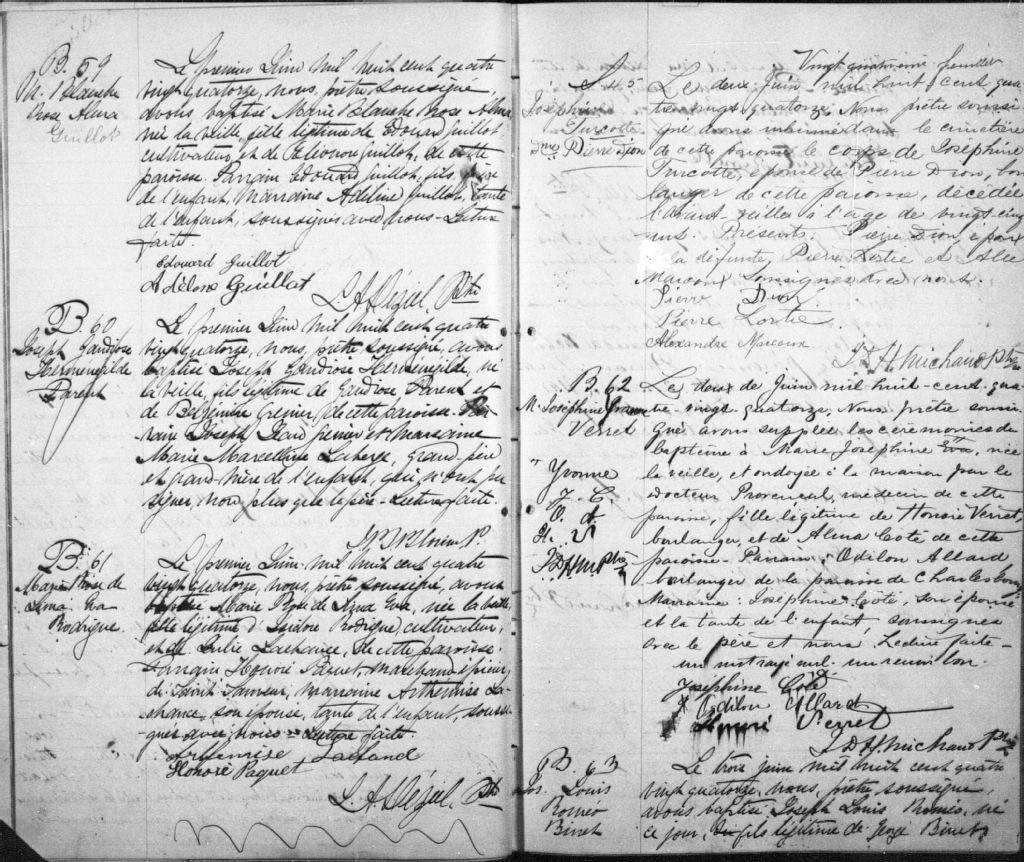 B. 59
M. Blanche
Rose Alma
Guillot
Le premier Juin mil huit cent quatre
vingt quatorze, nous, prêtre, soussigné,
avons baptisé Marie Blanche Rose Alma
née la veille, fille légitime de Edouard Guillot
cultivateur, et de Eléonore Guillot, de cette
paroisse. Parrain Edouard Guillot, fils, frère
de l'enfant, marraine Adéline Guillot, tante
de l'enfant, soussignés avec nous. Lecture
faite.
Edouard Guillot
Guillot
L. A. Déziel, Ptre
B. 60
Joseph Gaudiose
Herménégilde
Parent
Le premier Juin mil huit cent quatre
vingt quatorze, nous, prêtre soussigné, avons
baptisé Joseph Gaudiose Herménégilde, né
la veille, fils légitime de Gaudiose Parent et
de Grenier, de cette paroisse. Par-
rain Joseph Grenier et Marraine
Marie Marcelline Laberge, grand-père
et grand-mère de l'enfant, qui n'ont pu
signer, non plus que le père. Lecture faite.
B. 61
Marie Rose de
Lima Eva
Rodrigue.
Le premier Juin mil huit cent quatre
vingt quatorze, nous, prêtre soussigné, avons
baptisé Marie Rose de Lima Eva, née la veille,
fille légitime d'Isidore Rodrigue, cultivateur,
et de Julie Lachance, de cette paroisse.
Parrain Honoré Paquet, marchand épicier,
de Saint Sauveur, marraine Arthémise La-
chance, son épouse, tante de l'enfant, soussi-
gnés avec nous. Lecture faite
Arthemise
Honoré Paquet
L. A. Déziel, Ptre
Vingt quatrième feuillet
S. 45
Joséphine
Turcotte
Dme Pierre Dion
Le deux Juin mil huit cent qua
tre vingt quatorze, Nous prêtre soussi
gné avons inhumé dans le cimetière
de cette paroisse le corps de Joséphine
Turcotte, épouse de Pierre Dion, bou
langer de cette paroisse, décédée
l'avant-veille à l'âge de vingt-cinq
ans. Présents: Pierre Dion, époux
de la défunte, Pierre Lortie et Alex
Marcoux soussignés avec nous.
Pierre Dion
Pierre Lortie
Alexandre Marcoux
J. D. H. Michaud Ptre
B. 62
M. Joséphine
Verret
" Yvonne
J. C.
J.D.H.M. Ptre
Le deux de Juin mil huit-cent-qua
tre vingt-quatorze, Nous prêtre soussi
gné avons suppléé les cérémonies du
baptême à Marie Joséphine Eva, née
la veille, et ondoyée à la maison par le
Docteur médecin de cette
paroisse, fille légitime de Honoré Verret,
boulanger, et de Alma Coté de cette
paroisse. Parrain: Odilon Allard
boulanger de la paroisse de Charlesbourg
Marraine: Joséphine Coté, son épouse
et la tante de l'enfant soussignés
avec le père et nous. Lecture faite
un mot rayé nul. un renvoi bon.
Joséphine Coté
Odilon Allard
Honoré Verret
J D H Michaud Ptre
B. 63
Jos. Louis
Roméo
Binet
Le trois juin mil huit cent quatre
vingt quatorze, nous, prêtre soussigné,
avons baptisé Joseph Louis Roméo, né
ce jour, fils légitime de George Binet